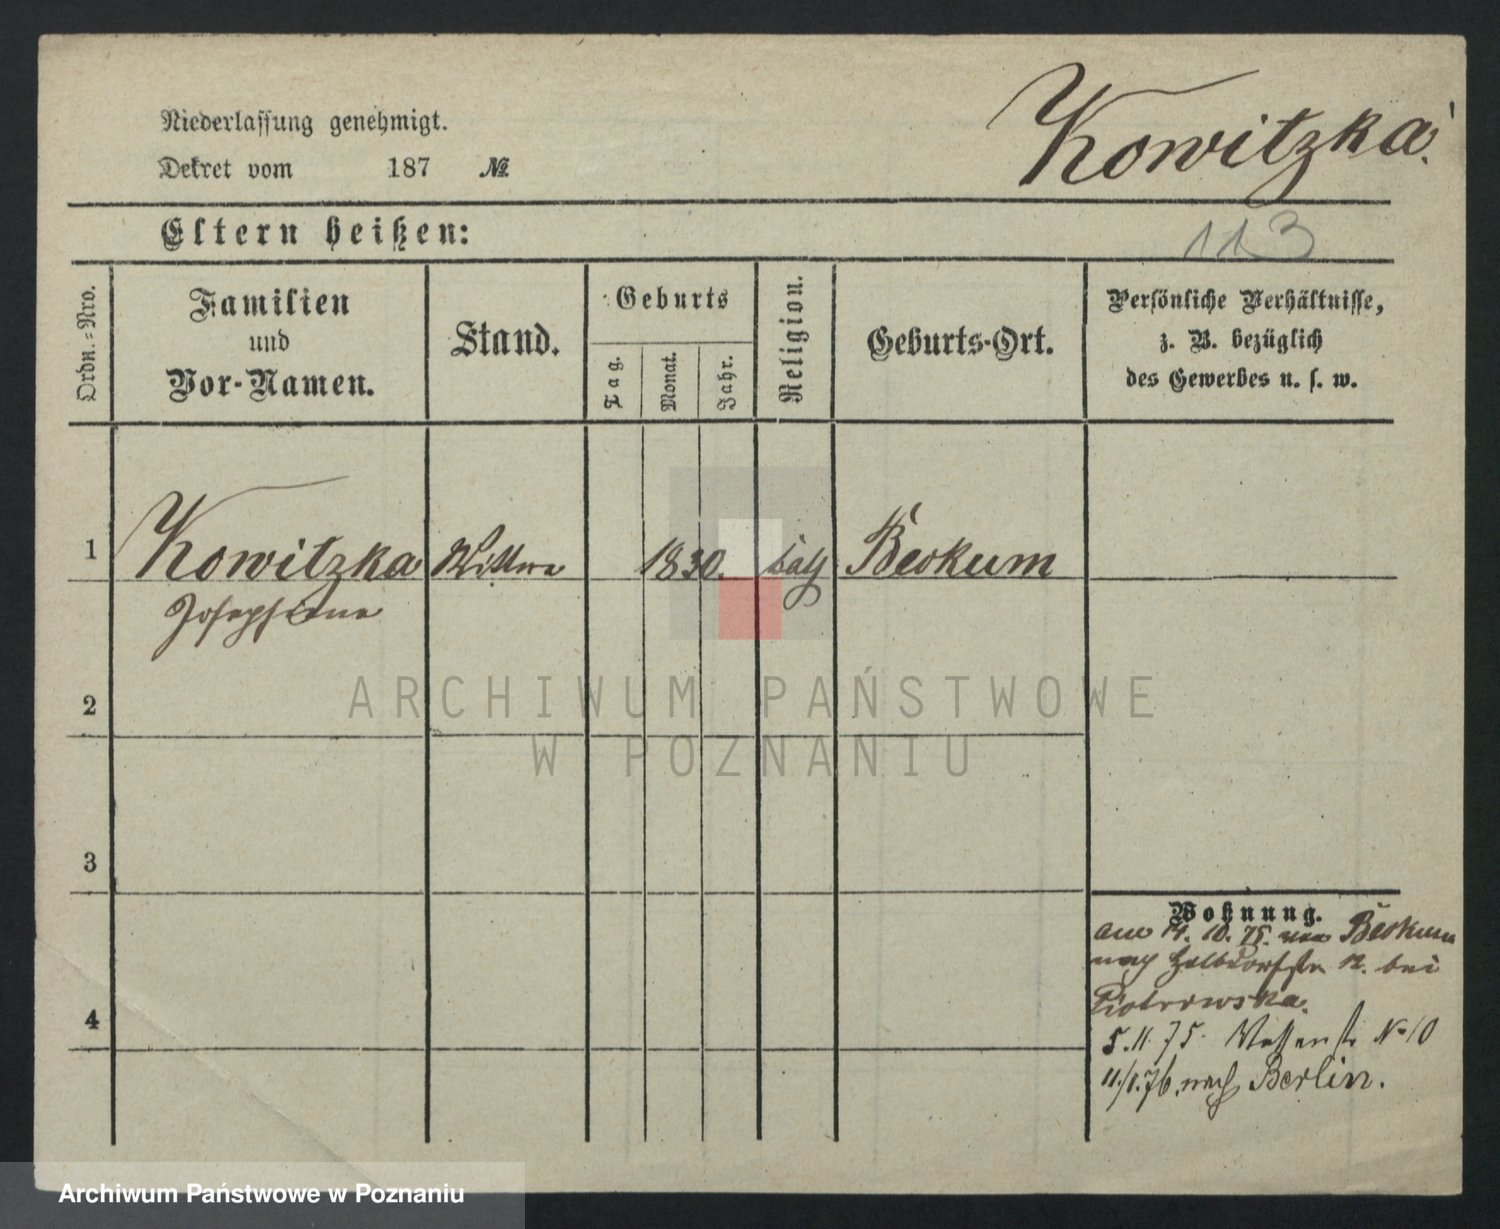 Kowitzka.
Niederlassung genehmigt.
Dekret vom 187 №
113
Eltern heißen:
Ordn.-Nro.
Familien
und
Vor-Namen.
Stand.
Geburts
Tag.
Monat.
Jahr.
Religion.
Geburts-Ort.
Persönliche Verhältnisse,
z. B. bezüglich
des Gewerbes u. s. w.
1 Kowitzka Wittwe 1830. kath
Josephine
2
3
4
Wohnung.
am 14. 10. 75. von
nach Halbdorfstr. 12. bei
Piotrowska.
5.11.75. № 10
11/1.76. nach Berlin.
ARCHIWUM PAŃSTWOWE
W POZNANIU
Archiwum Państwowe w Poznaniu